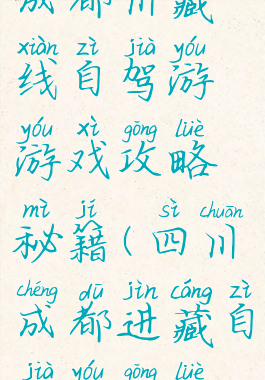 成都川藏
xiàn zì jià yóu
线自驾游
yóu xì gōng lüè
游戏攻略
mì jí sì chuān
秘籍(四川
chéng dū jìn cáng zì
成都进藏自
jià yóu gōng lüè